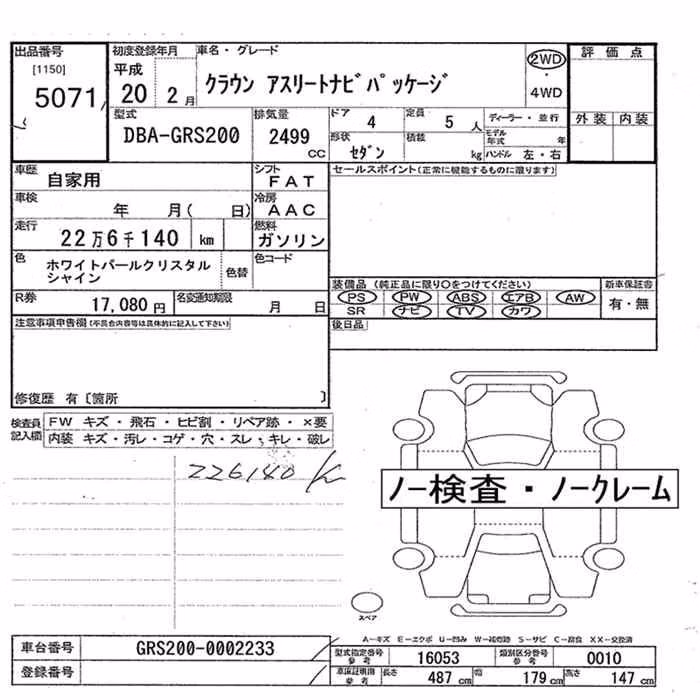 出品番号 初度登録年月 車名・グレード 評価点
[1150] 平成 2WD
5071 20 2月 クラウン アスリートナビパッケージ ・
4WD
型式 排気量 ドア 4 定員 5人 ディーラー・並行 外装 内装
DBA-GRS200 2499 cc 形状 セダン 積載 kg モデル年式 年
ハンドル 左・右
車歴 自家用 シフト FAT セールスポイント(正常に機能するものに限ります)
車検 年 月( 日) 冷房 AAC
走行 22万6千140 km 燃料 ガソリン
色 ホワイトパールクリスタル 色替 色コード
シャイン
装備品 (純正品に限り○をつけてください) 新車保証書
R券 17,080円 名変通知期限 月 日 PS PW ABS エアB AW 有・無
SR ナビ TV カワ
注意事項申告欄(不具合内容等は具体的に記入して下さい) 後日品
修復歴 有〔箇所 〕
検査員 FW キズ・飛石・ヒビ割・リペア跡・×要
記入欄 内装 キズ・汚レ・コゲ・穴・スレ・キレ・破レ
226140 K
ノー検査・ノークレーム
スペア
A-キズ E-エクボ U-凹み W-補修跡 S-サビ C-腐食 XX-交換済
車台番号 GRS200-0002233 型式指定番号参考 16053 類別区分番号参考 0010
登録番号 車検証明細参考 長さ 487 cm 幅 179 cm 高さ 147 cm